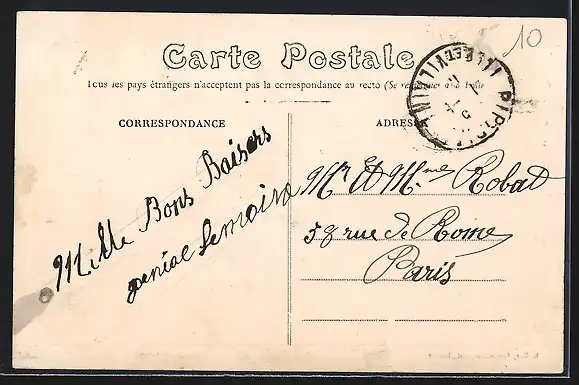 10
Carte Postale
Tous les pays étrangers n'acceptent pas la correspondance au recto (Se renseigner à la Poste)
CORRESPONDANCE
ADRESSE
Mille Bons Baisers
Lemoine
Mr Et Mme Robat
58 rue de Rome
Paris